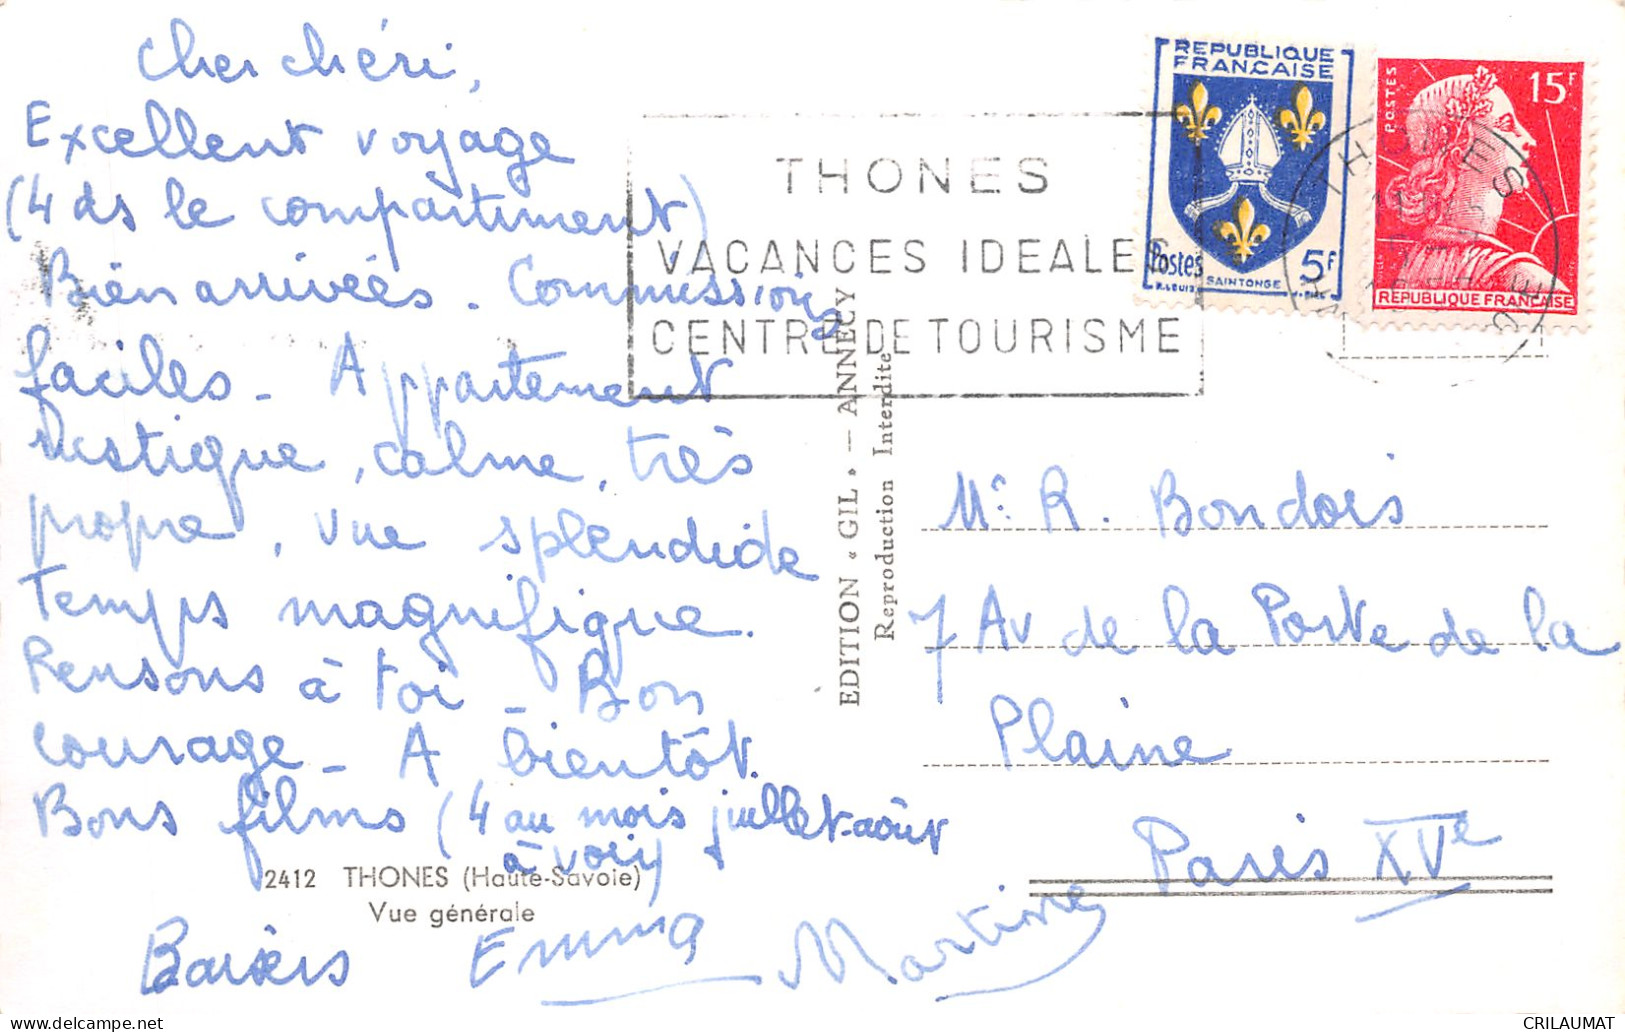 Cher chéri,
Excellent voyage
(4 ds le compartiment)
Bien arrivées. Commissions
faciles - Appartement
rustique, calme, très
propre, vue splendide
Temps magnifique.
Pensons à toi - Bon
courage - A bientôt.
Bons films (4 au mois juillet-août
à voir)
2412 THONES (Haute-Savoie)
Vue générale
Baisers Emma Martine
THONES
VACANCES IDEALES
CENTRE DE TOURISME
EDITION « GIL » — ANNECY
Reproduction Interdite
REPUBLIQUE
FRANÇAISE
Postes 5F
SAINTONGE
POSTES 15F
REPUBLIQUE FRANÇAISE
THONES
Mr. R. Bondois
7 Av de la Porte de la
Plaine
Paris XVe
CRILAUMAT